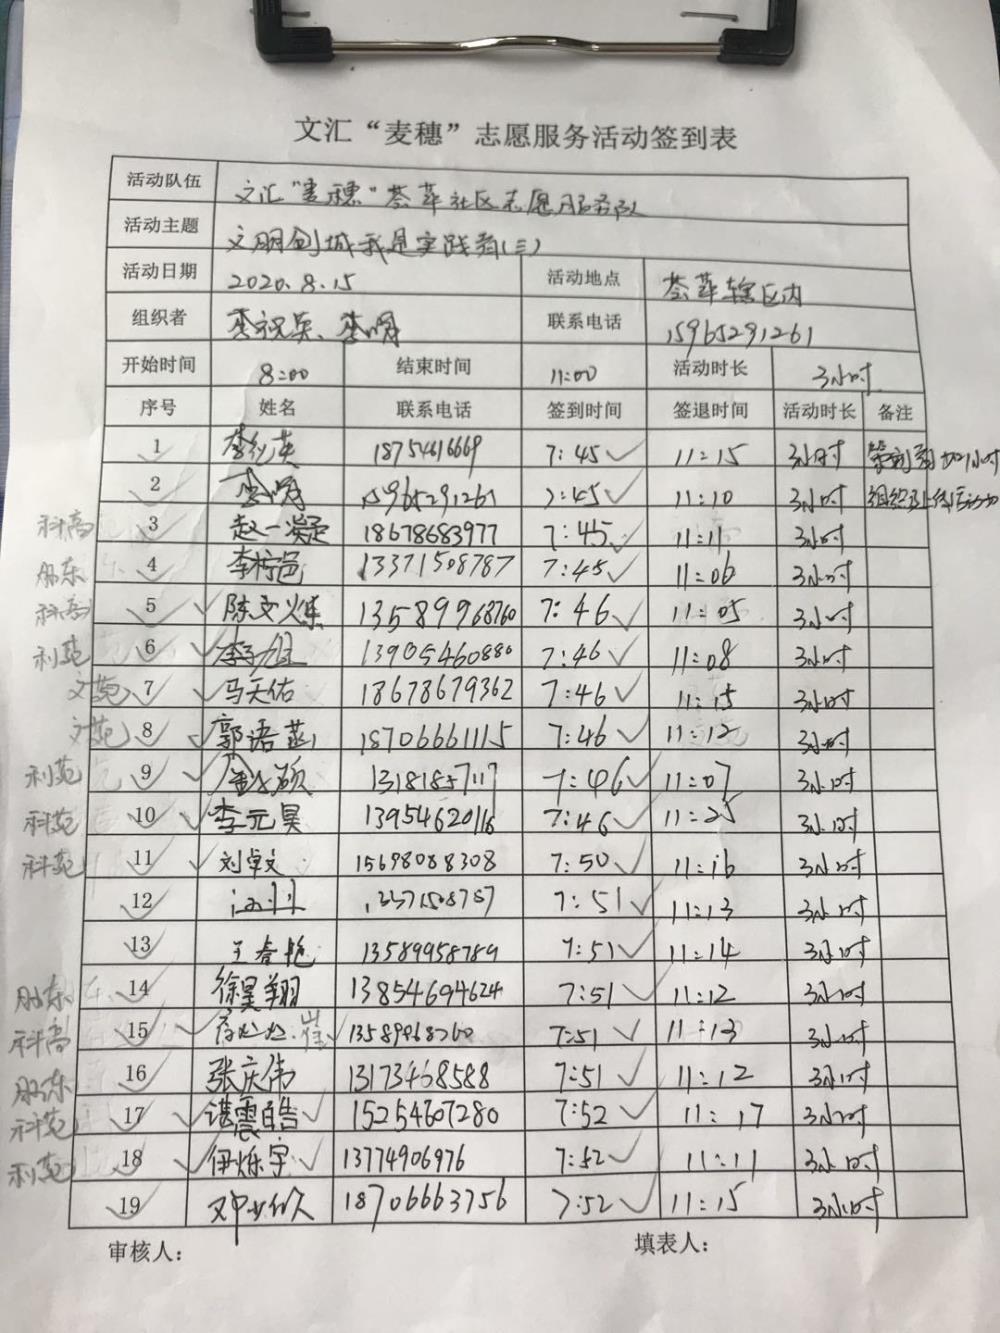 文汇“麦穗”志愿服务活动签到表
活动队伍 文汇“麦穗”荟萃社区志愿服务队
活动主题 文明创城我是实践者(三)
活动日期 2020.8.15 活动地点 荟萃辖区内
组织者 联系电话 15965291261
开始时间 8:00 结束时间 11:00 活动时长 3小时
序号 姓名 联系电话 签到时间 签退时间 活动时长 备注
1 18754616669 7:45 11:15 3小时
2 15965291261 7:45 11:10 3小时
科高 3 赵一凝 18678683977 7:45 11:11 3小时
胜东 4 李柠邑 13371508787 7:45 11:06 3小时
科高 5 陈文火 13589968760 7:46 11:05 3小时
利苑 6 13905460880 7:46 11:08 3小时
文苑 7 马天佑 18678679362 7:46 11:15 3小时
文苑 8 郭语菡 18706661115 7:46 11:12 3小时
利苑 9 13181857117 7:46 11:07 3小时
科苑 10 李元昊 13954620116 7:46 11:25 3小时
科苑 11 刘卓文 15698088308 7:50 11:16 3小时
12 13371508787 7:51 11:13 3小时
13 王春艳 13589958789 7:51 11:14 3小时
胜东 14 徐昊翔 13854694624 7:51 11:12 3小时
科高 15 崔 13589968760 7:51 11:13 3小时
胜东 16 张庆伟 13173468588 7:51 11:12 3小时
科苑 17 谌震皓 15254607280 7:52 11:17 3小时
利苑 18 伊烁宇 13774906976 7:52 11:11 3小时
19 18706663756 7:52 11:15 3小时
审核人： 填表人：